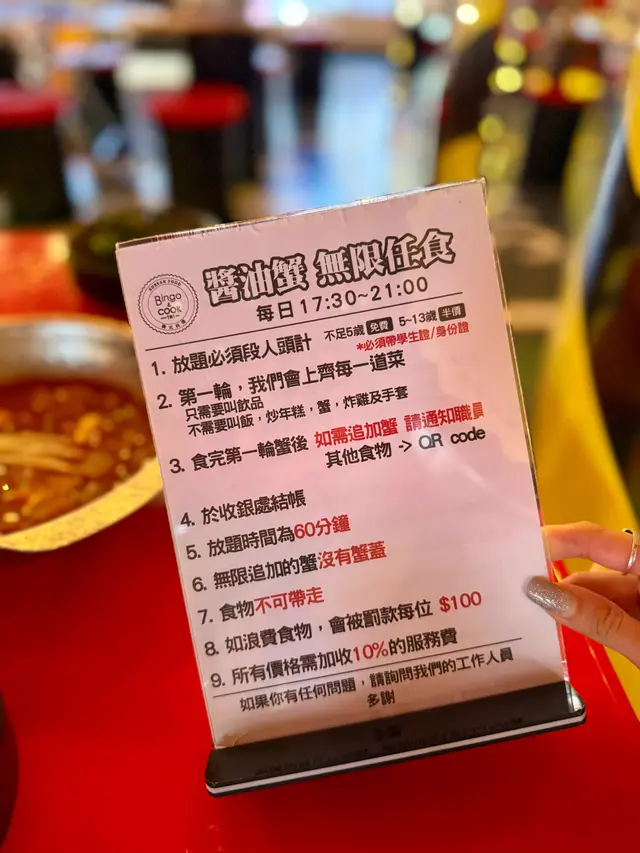 KOREAN FOOD
Bingo
&
cook
韓式料理
醬油蟹 無限任食
每日 17:30~21:00
1. 放題必須段人頭計 不足5歲 免費 5~13歲 半價
*必須帶學生證/身份證
2. 第一輪，我們會上齊每一道菜
只需要叫飲品
不需要叫飯，炒年糕，蟹，炸雞及手套
3. 食完第一輪蟹後 如需追加蟹 請通知職員
其他食物 -> QR code
4. 於收銀處結帳
5. 放題時間為60分鐘
6. 無限追加的蟹沒有蟹蓋
7. 食物不可帶走
8. 如浪費食物，會被罰款每位 $100
9. 所有價格需加收10%的服務費
如果你有任何問題，請詢問我們的工作人員
多謝